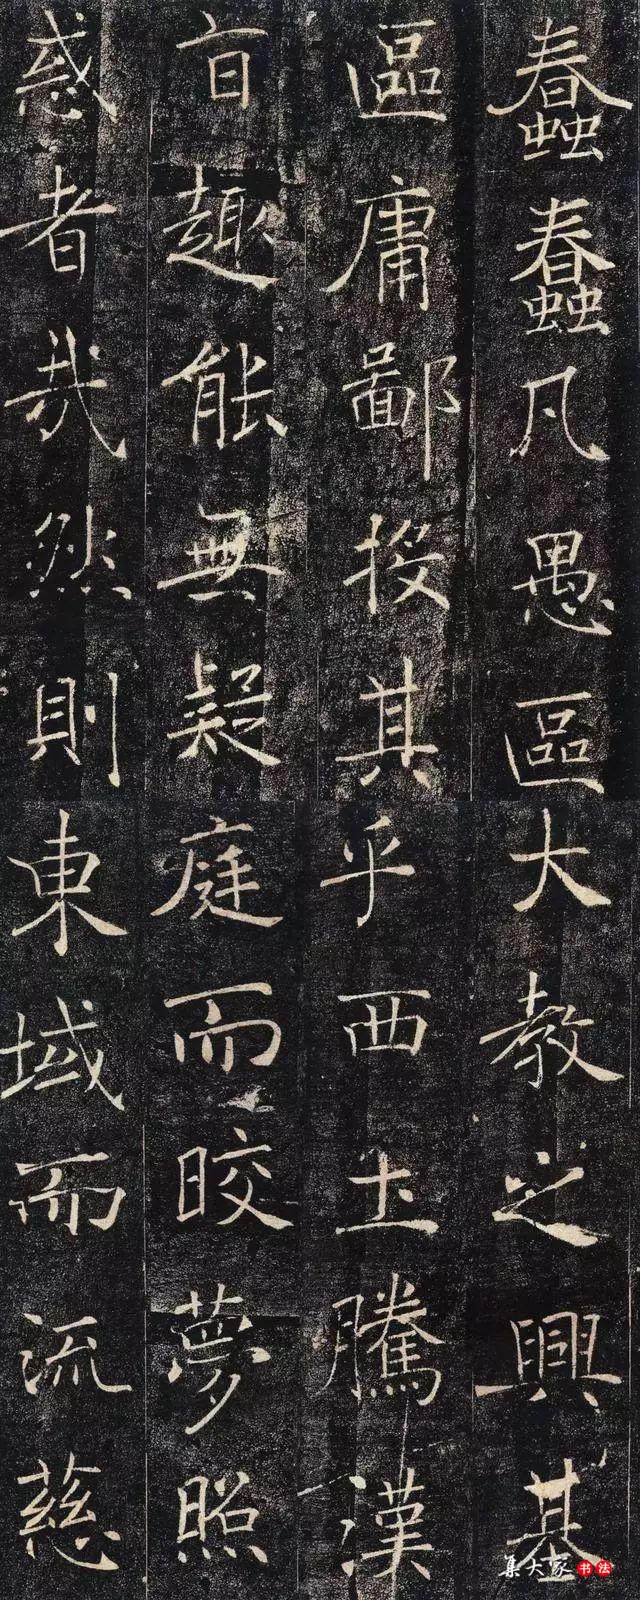 蠢蠢凡愚區
區庸鄙投其
旨趣能無疑
惑者哉然則
大教之興基
乎西土騰漢
庭而晈夢照
東域而流慈
集大家书法